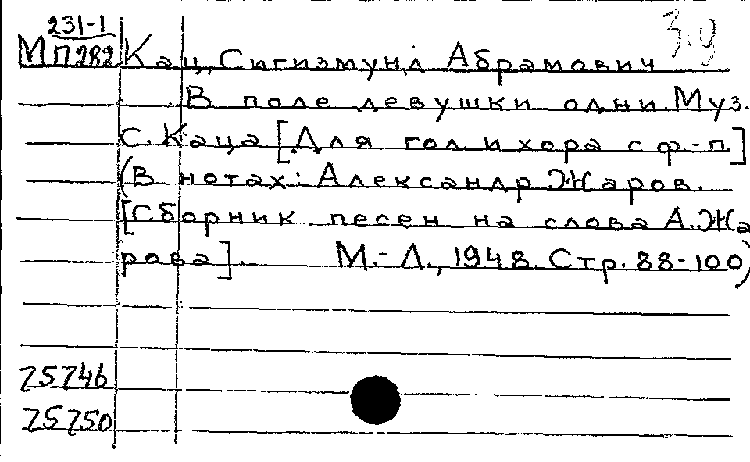 231-1
МП282 Кац, Сигизмунд Абрамович
В поле девушки одни. Муз.
С. Каца [Для гол. и хора с ф-п.]
(В нотах: Александр Жаров.
[Сборник песен на слова А. Жа
рова]. М.-Л., 1948. Стр. 88-100)
75746
75750